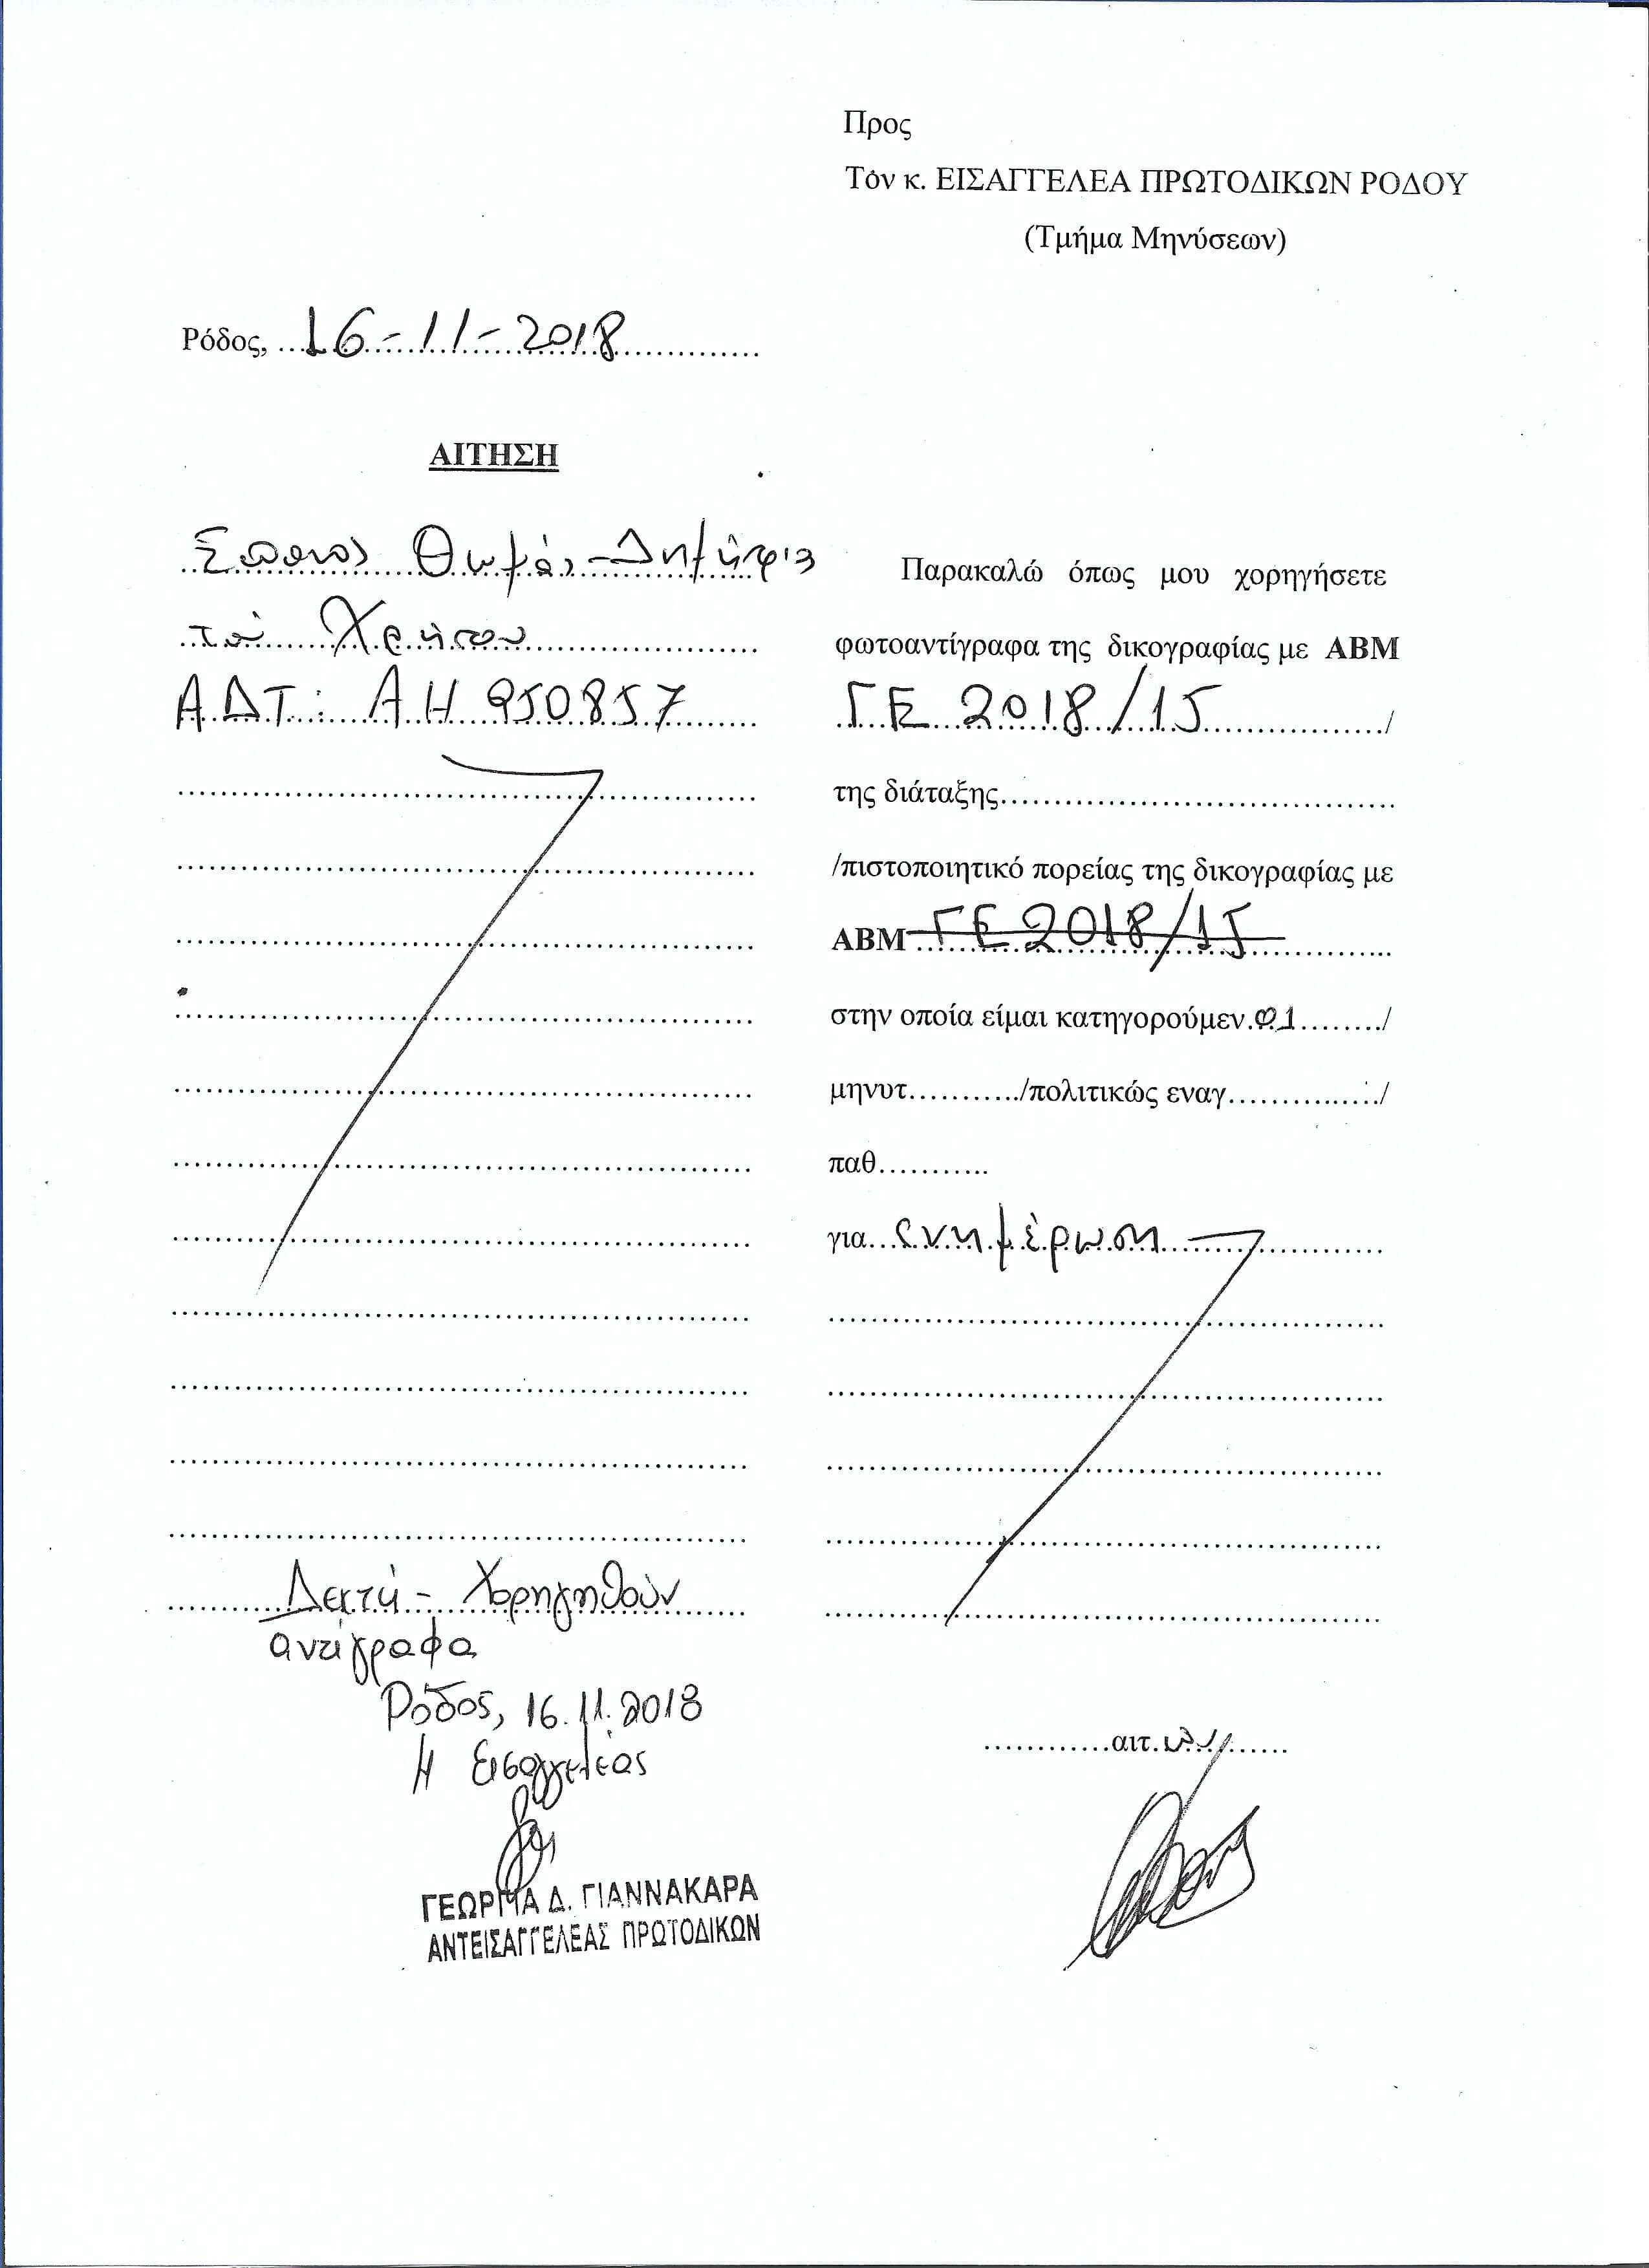 Προς
Τόν κ. ΕΙΣΑΓΓΕΛΕΑ ΠΡΩΤΟΔΙΚΩΝ ΡΟΔΟΥ
(Τμήμα Μηνύσεων)
Ρόδος, 16-11-2018
ΑΙΤΗΣΗ
Θωμάς-Δημήτριος
του Χρήστου
Α.Δ.Τ.: ΑΗ 950857
Παρακαλώ όπως μου χορηγήσετε
φωτοαντίγραφα της δικογραφίας με ΑΒΜ
ΓΕ 2018/15 /
της διάταξης
/πιστοποιητικό πορείας της δικογραφίας με
ΑΒΜ ΓΕ 2018/15
στην οποία είμαι κατηγορούμεν /
μηνυτ............/πολιτικώς εναγ............../
παθ...........
για ενημέρωση
Δεκτή - Χορηγηθούν
αντίγραφα
Ρόδος, 16.11.2018
Η Εισαγγελέας
ΓΕΩΡΓΙΑ Δ. ΓΙΑΝΝΑΚΑΡΑ
ΑΝΤΕΙΣΑΓΓΕΛΕΑΣ ΠΡΩΤΟΔΙΚΩΝ
αιτ.